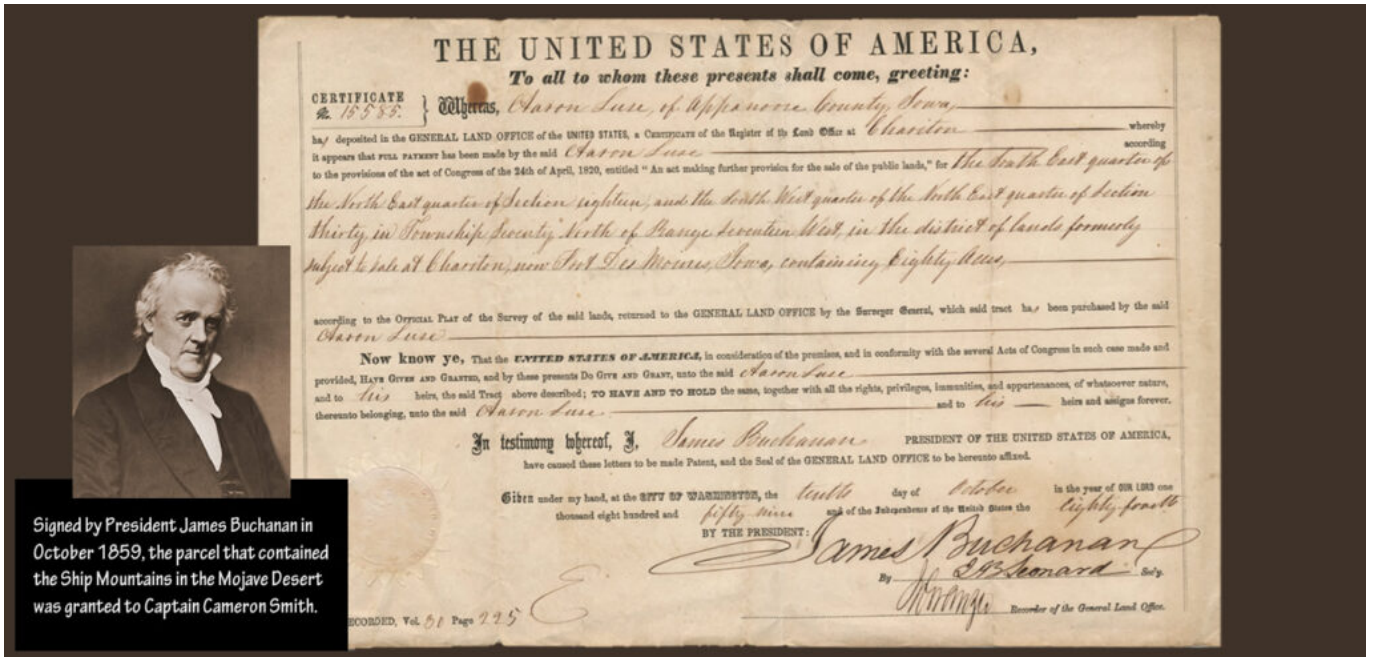 THE UNITED STATES OF AMERICA,
To all to whom these presents shall come, greeting:
CERTIFICATE
No. 15585.
Whereas, Aaron Luse, of Appanoose County, Iowa,
ha/ deposited in the GENERAL LAND OFFICE of the UNITED STATES, a CERTIFICATE of the Register of the Land Office at Chariton whereby
it appears that FULL PAYMENT has been made by the said Aaron Luse according
to the provisions of the act of Congress of the 24th of April, 1820, entitled "An act making further provision for the sale of the public lands," for the South East quarter of
the North East quarter of Section eighteen, and the South West quarter of the North East quarter of Section
thirty in Township Seventy North of Range Seventeen West, in the district of lands formerly
subject to sale at Chariton, now Fort Des Moines, Iowa, containing Eighty Acres,
according to the OFFICIAL PLAT of the Survey of the said lands, returned to the GENERAL LAND OFFICE by the Surveyor General, which said tract ha/ been purchased by the said
Aaron Luse
Now know ye, That the UNITED STATES OF AMERICA, in consideration of the premises, and in conformity with the several Acts of Congress in such case made and
provided, HAVE GIVEN AND GRANTED, and by these presents DO GIVE AND GRANT, unto the said Aaron Luse
and to his heirs, the said Tract above described; TO HAVE AND TO HOLD the same, together with all the rights, privileges, immunities, and appurtenances, of whatsoever nature,
thereunto belonging, unto the said Aaron Luse and to his heirs and assigns forever.
In testimony whereof, I, James Buchanan PRESIDENT OF THE UNITED STATES OF AMERICA,
have caused these letters to be made Patent, and the Seal of the GENERAL LAND OFFICE to be hereunto affixed.
Given under my hand, at the CITY OF WASHINGTON, the tenth day of October in the year of OUR LORD one
thousand eight hundred and fifty nine and of the Independence of the United States the eighty fourth
BY THE PRESIDENT: James Buchanan
By Leonard Sec'y.
Recorder of the General Land Office.
ECORDED, Vol. 30 Page 225
Signed by President James Buchanan in
October 1859, the parcel that contained
the Ship Mountains in the Mojave Desert
was granted to Captain Cameron Smith.